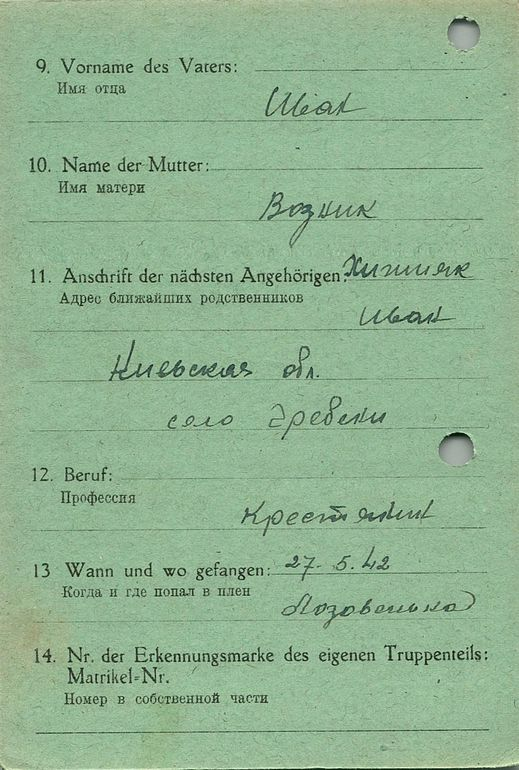 9. Vorname des Vaters:
Имя отца
Иван
10. Name der Mutter:
Имя матери
Возник
11. Anschrift der nächsten Angehörigen:
Адрес ближайших родственников
Иван
Киевская обл.
село Гребени
12. Beruf:
Профессия
Крестянин
13 Wann und wo gefangen: 27. 5. 42
Когда и где попал в плен
Лозовенька
14. Nr. der Erkennungsmarke des eigenen Truppenteils:
Matrikel-Nr.
Номер в собственной части